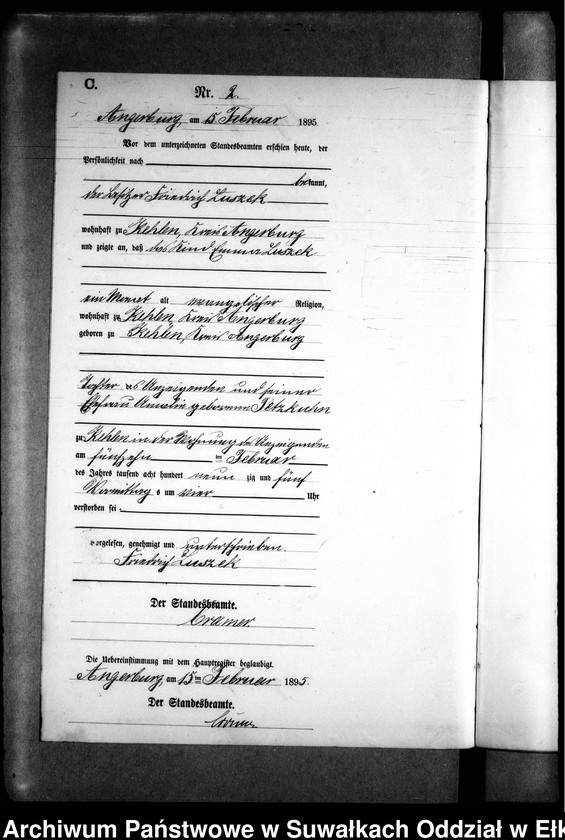 C.
Nr. 2.
Angerburg, am 15 Februar 1895.
Vor dem unterzeichneten Standesbeamten erschien heute, der
Persönlichkeit nach
bekannt,
der Besitzer Friedrich Luszek
wohnhaft zu Kehlen, Kreis Angerburg
und zeigte an, daß das Kind Emma Luszek
ein Monat alt evangelischer Religion,
wohnhaft zu Kehlen, Kreis Angerburg
geboren zu Kehlen, Kreis Angerburg
Tochter des Anzeigenden und seiner
Ehefrau Amalie geborenen Jetzkuhn
zu Kehlen in der Wohnung des Anzeigenden
am fünfzehn ten Februar
des Jahres tausend acht hundert neun zig und fünf
Vormittag s um vier Uhr
verstorben sei.
Vorgelesen, genehmigt und unterschrieben.
Friedrich Luszek
Der Standesbeamte.
Cramer.
Die Uebereinstimmung mit dem Hauptregister beglaubigt.
Angerburg, am 15ten Februar 1895.
Der Standesbeamte.
Cramer.
Archiwum Państwowe w Suwałkach Oddział w Ełk